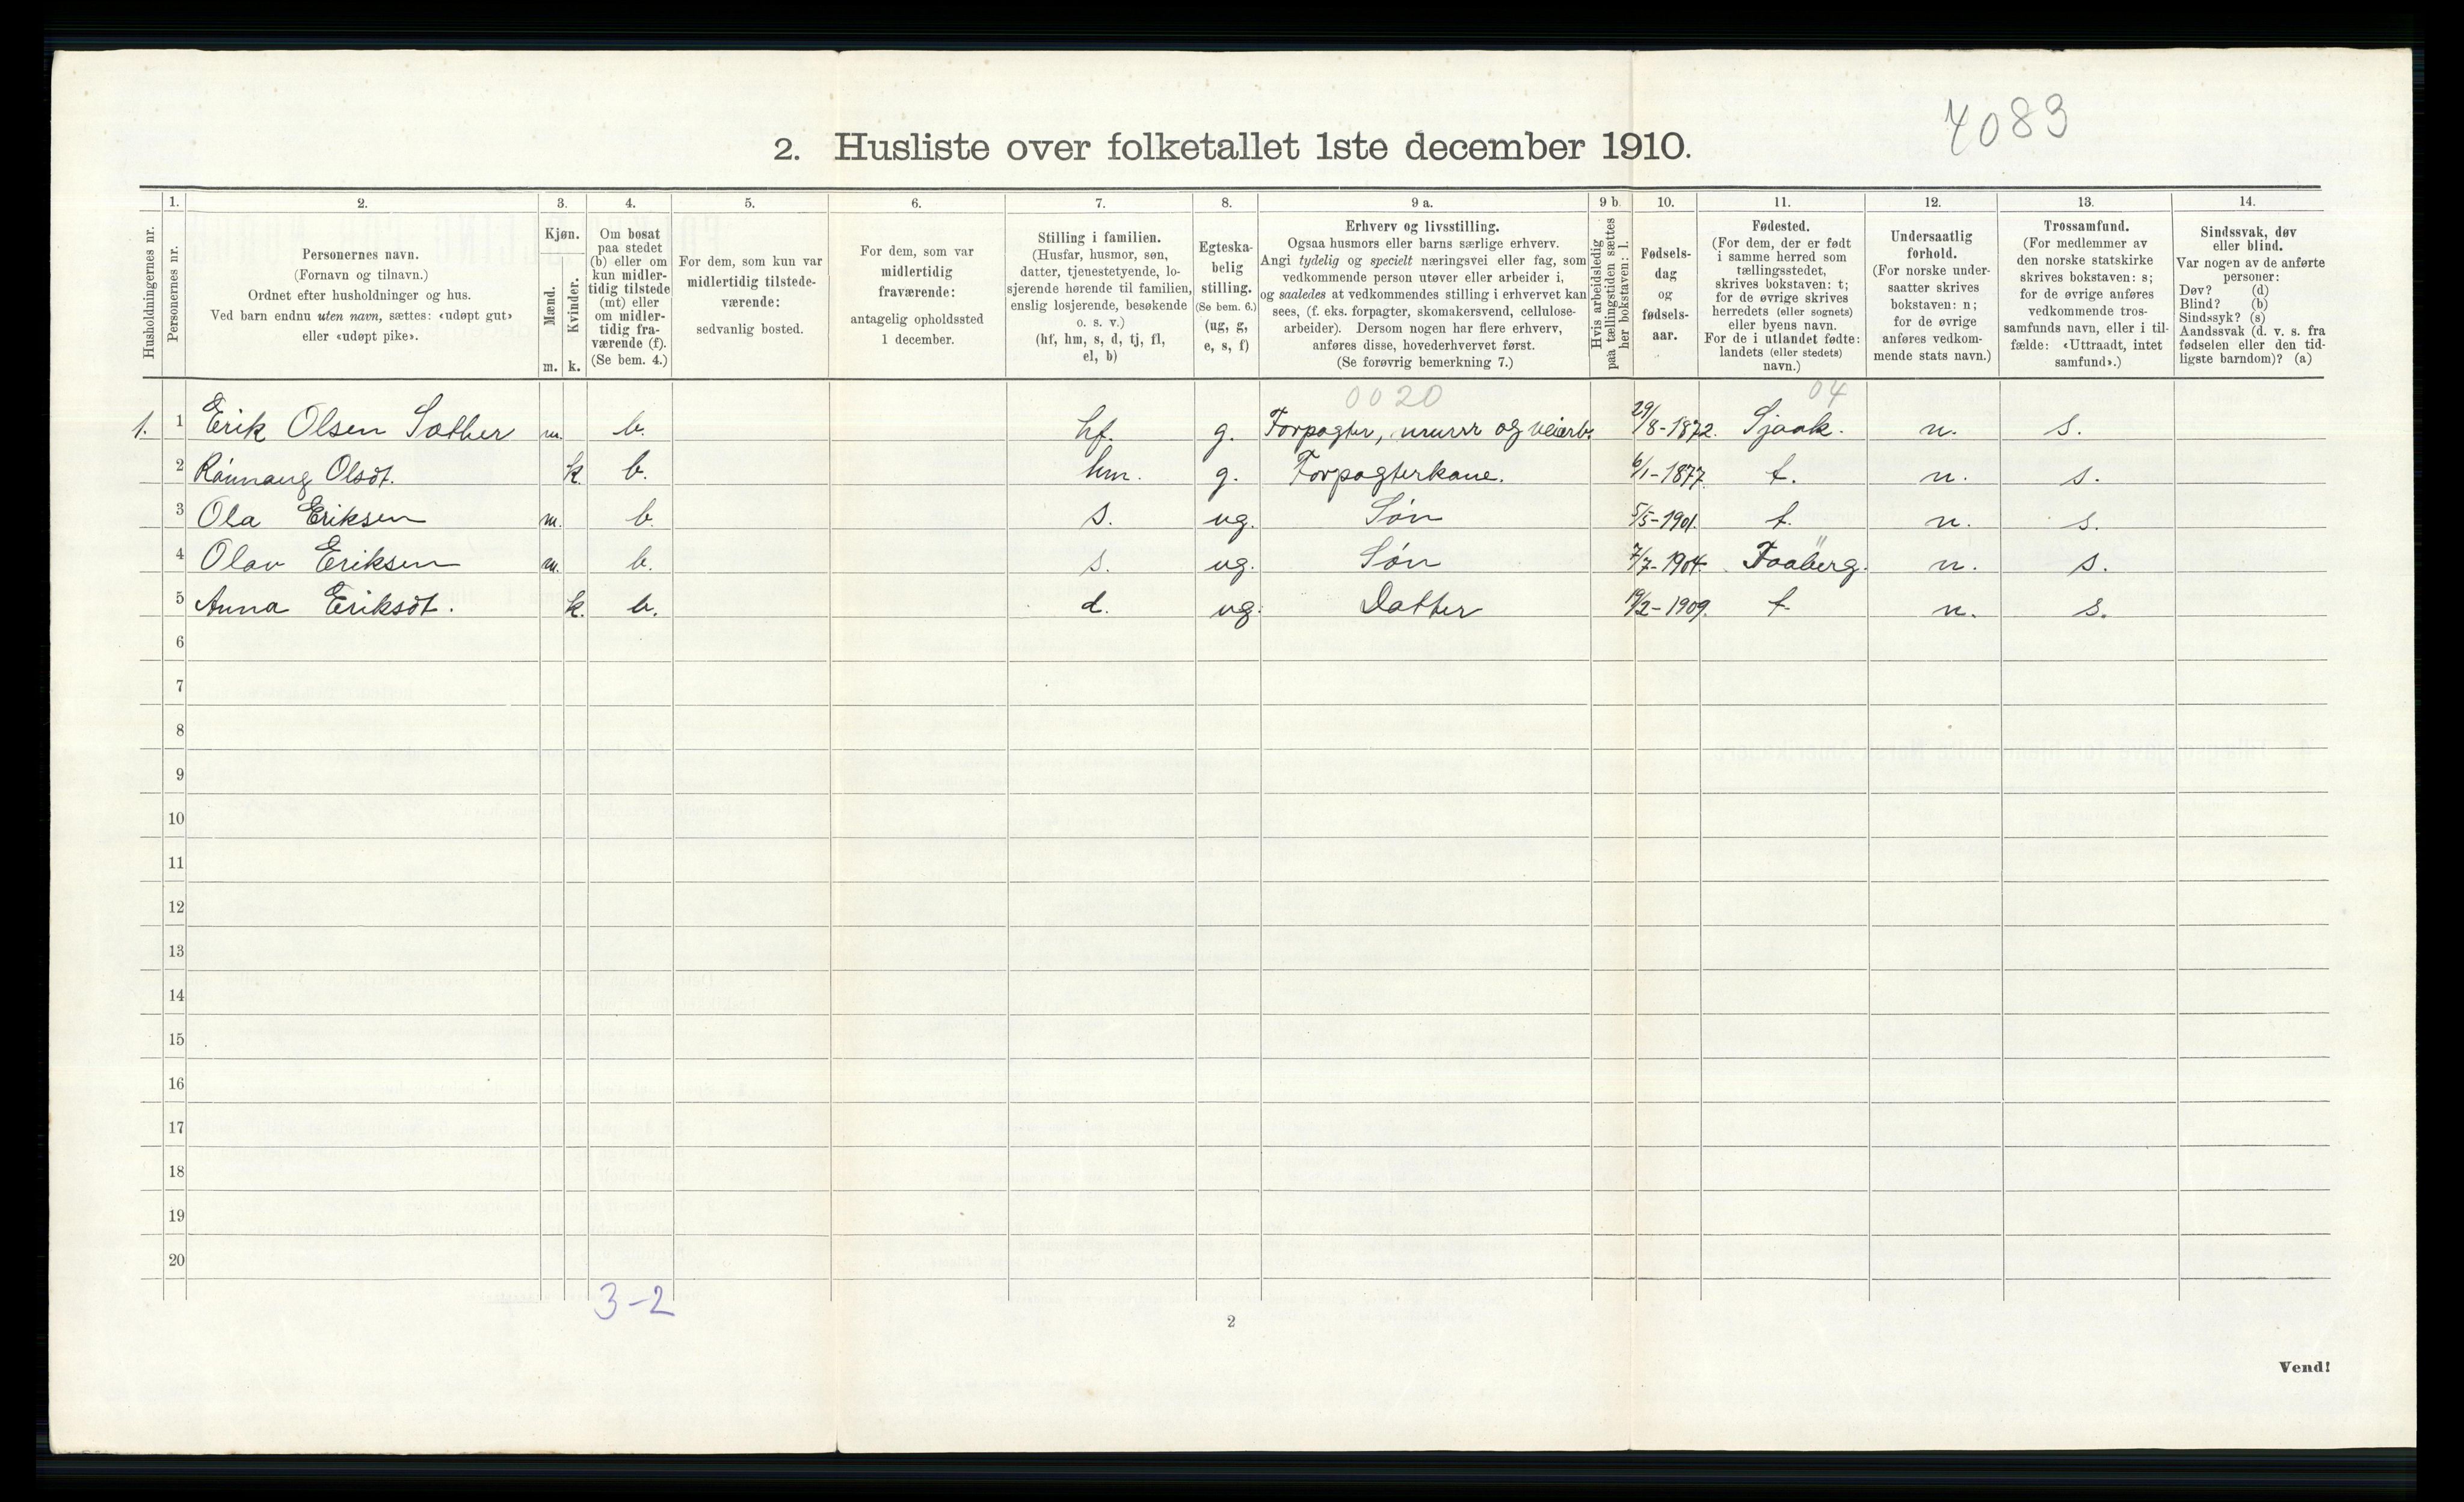 7083
2. Husliste over folketallet 1ste december 1910.
Husholdningernes nr.
1.
Personernes nr.
2.
Personernes navn.
(Fornavn og tilnavn.)
Ordnet efter husholdninger og hus.
Ved barn endnu uten navn, sættes: «udøpt gut»
eller «udøpt pike».
3.
Kjøn.
Mænd.
m.
Kvinder.
k.
4.
Om bosat
paa stedet
(b) eller om
kun midler-
tidig tilstede
(mt) eller
om midler-
tidig fra-
værende (f).
(Se bem. 4.)
5.
For dem, som kun var
midlertidig tilstede-
værende:
sedvanlig bosted.
6.
For dem, som var
midlertidig
fraværende:
antagelig opholdssted
1 december.
7.
Stilling i familien.
(Husfar, husmor, søn,
datter, tjenestetyende, lo-
sjerende hørende til familien,
enslig losjerende, besøkende
o. s. v.)
(hf, hm, s, d, tj, fl,
el, b)
8.
Egteska-
belig
stilling.
(Se bem. 6.)
(ug, g,
e, s, f)
9 a.
Erhverv og livsstilling.
Ogsaa husmors eller barns særlige erhverv.
Angi tydelig og specielt næringsvei eller fag, som
vedkommende person utøver eller arbeider i,
og saaledes at vedkommendes stilling i erhvervet kan
sees, (f. eks. forpagter, skomakersvend, cellulose-
arbeider). Dersom nogen har flere erhverv,
anføres disse, hovederhvervet først.
(Se forøvrig bemerkning 7.)
9 b.
Hvis arbeidsledig
paa tællingstiden sættes
her bokstaven: l.
10.
Fødsels-
dag
og
fødsels-
aar.
11.
Fødested.
(For dem, der er født
i samme herred som
tællingsstedet,
skrives bokstaven: t;
for de øvrige skrives
herredets (eller sognets)
eller byens navn.
For de i utlandet fødte:
landets (eller stedets)
navn.)
12.
Undersaatlig
forhold.
(For norske under-
saatter skrives
bokstaven: n;
for de øvrige
anføres vedkom-
mende stats navn.)
13.
Trossamfund.
(For medlemmer av
den norske statskirke
skrives bokstaven: s;
for de øvrige anføres
vedkommende tros-
samfunds navn, eller i til-
fælde: «Uttraadt, intet
samfund».)
14.
Sindssvak, døv
eller blind.
Var nogen av de anførte
personer:
Døv? (d)
Blind? (b)
Sindssyk? (s)
Aandssvak (d. v. s. fra
fødselen eller den tid-
ligste barndom)? (a)
0020 04
1. 1 Erik Olsen Sæther m. b. hf. g. Forpagter, og veiarb. 29/8-1872. Sjaak. n. s.
2 Rønnaug Olsdt. k. b. hm. g. Forpagterkone. 6/1-1877. t. n. s.
3 Ola Eriksen m. b. s. ug. Søn 5/5-1901. t. n. s.
4 Olav Eriksen m. b. s. ug. Søn 7/7-1904. Faaberg. n. s.
5 Anna Eriksdt. k. b. d. ug. Datter 19/2-1909. t. n. s.
6
7
8
9
10
11
12
13
14
15
16
17
18
19
20
3-2
2
Vend!